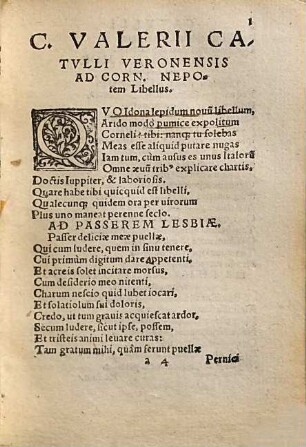 1
C. VALERII CA-
TVLLI VERONENSIS
AD CORN. NEPO-
tem Libellus.
QVO Idona lepidum nouũ libellum,
Arido modò pumice expolitum
Corneli tibi: nanq; tu solebas
Meas esse aliquid putare nugas
Iam tum, cùm ausus es unus Italorũ
Omne æuũ tribº explicare chartis.
Doctis Iuppiter, & laboriosis.
Quare habe tibi quicquid est libelli,
Qualecunq; quidem ora per uirorum
Plus uno maneat perenne seclo.
AD PASSEREM LESBIÆ.
Passer deliciæ meæ puellæ,
Qui cum ludere, quem in sinu tenere,
Cui primùm digitum dare appetenti,
Et acreis solet incitare morsus,
Cum desiderio meo nitenti,
Charum nescio quid lubet iocari,
Et solatiolum sui doloris,
Credo, ut tum grauis acquiescat ardor,
Secum ludere, sicut ipse, possem,
Et tristeis animi leuare curas:
Tam gratum mihi, quàm ferunt puellæ
a 4 Pernici